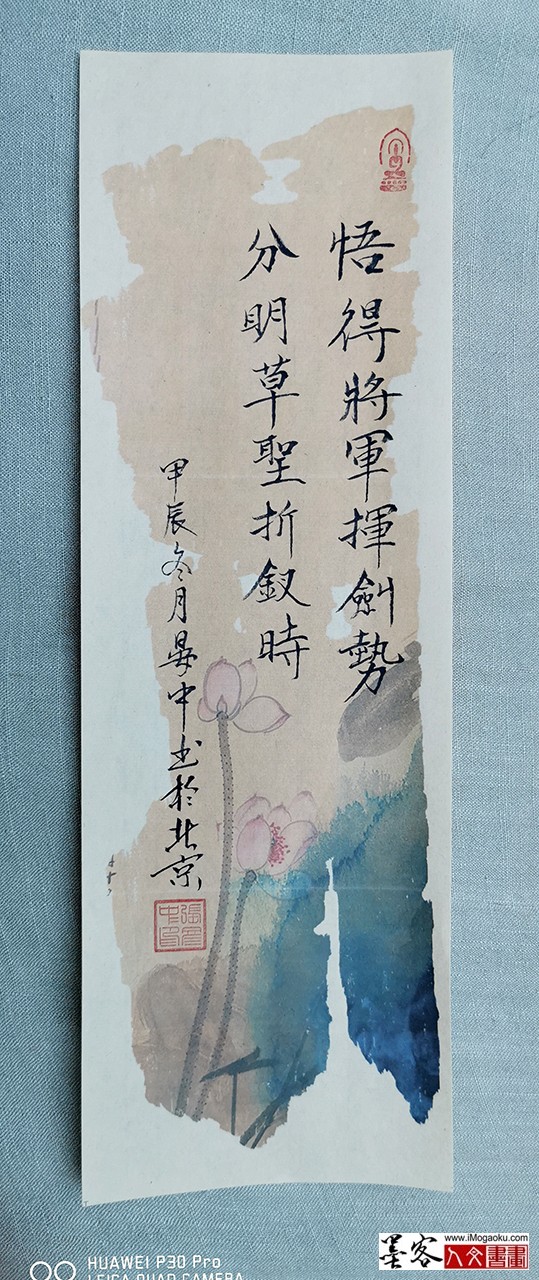 悟得將軍揮劍勢
分明草聖折釵時
甲辰冬月晏中书於北京
張晏中印
HUAWEI P30 Pro
LEICA QUAD CAMERA
www.iMogaoku.com
墨客
人文書畫